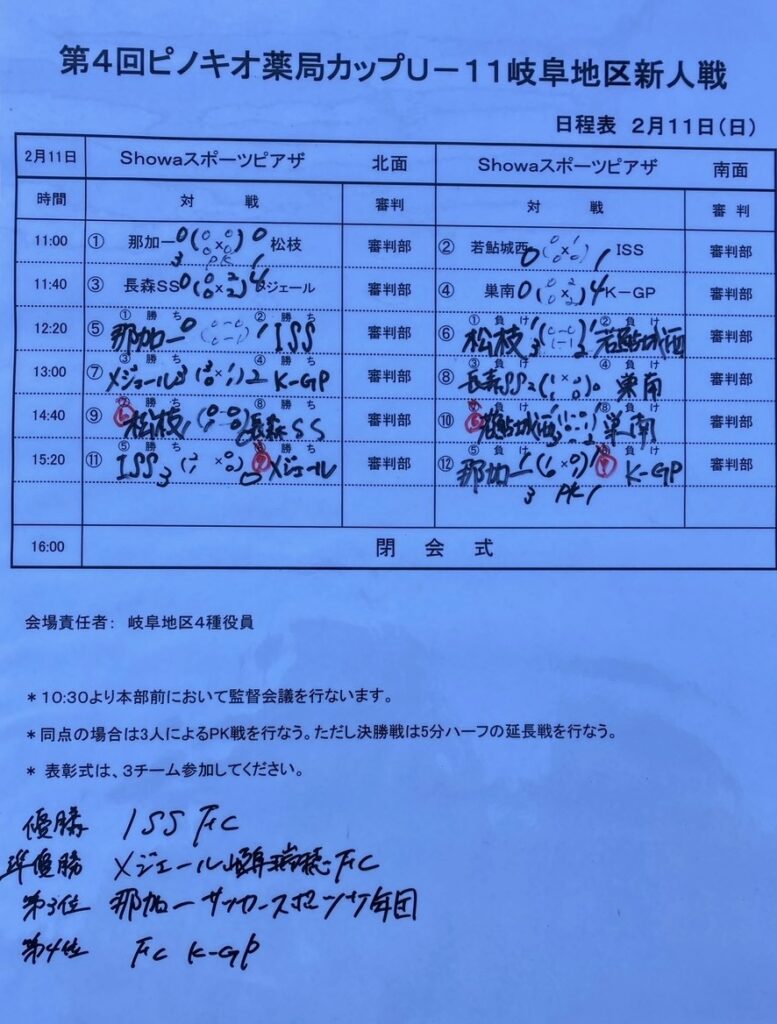 第4回ピノキオ薬局カップU－11岐阜地区新人戦
日程表 2月11日(日)
2月11日 Showaスポーツピアザ 北面 Showaスポーツピアザ 南面
時間 対 戦 審判 対 戦 審 判
11:00 ① 那加一 0 (0 0 × 0 0) 0 松枝 審判部 ② 若鮎城西 0 (0 0 × 1 0) 1 ISS 審判部
3 PK 1
11:40 ③ 長森SS 0 (0 0 × 2 2) 4 メジェール 審判部 ④ 巣南 0 (0 0 × 2 2) 4 K－GP 審判部
① 勝ち ② 勝ち ① 負け ② 負け
12:20 ⑤ 那加一 0 (0-0 0-1) 1 ISS 審判部 ⑥ 松枝 1 (0-0 1-1) 1 若鮎城西 審判部
3 2
③ 勝ち ④ 勝ち ③ 負け ④ 負け
13:00 ⑦ メジェール 3 (3 0 × 1 1) 2 K-GP 審判部 ⑧ 長森SS 2 (1 1 × 0 0) 0 巣南 審判部
⑥ 勝ち ⑧ 勝ち ⑥ 負け ⑧ 負け
14:40 ⑨ 松枝 1 (0-0 1-0) 0 長森SS 審判部 ⑩ 若鮎城西 巣南 審判部
⑤ 勝ち ⑦ 勝ち ⑤ 負け ⑦ 負け
15:20 ⑪ ISS 3 (2 1 × 0 0) 0 メジェール 審判部 ⑫ 那加一 1 (1 0 × 0 1) 1 K-GP 審判部
3 PK 1
16:00 閉 会 式
会場責任者： 岐阜地区4種役員
＊10:30より本部前において監督会議を行ないます。
＊同点の場合は3人によるPK戦を行なう。ただし決勝戦は5分ハーフの延長戦を行なう。
＊ 表彰式は、3チーム参加してください。
優勝 ISS FC
準優勝 メジェール岐阜瑞穂FC
第3位 那加一サッカースポーツ少年団
第4位 FC K-GP